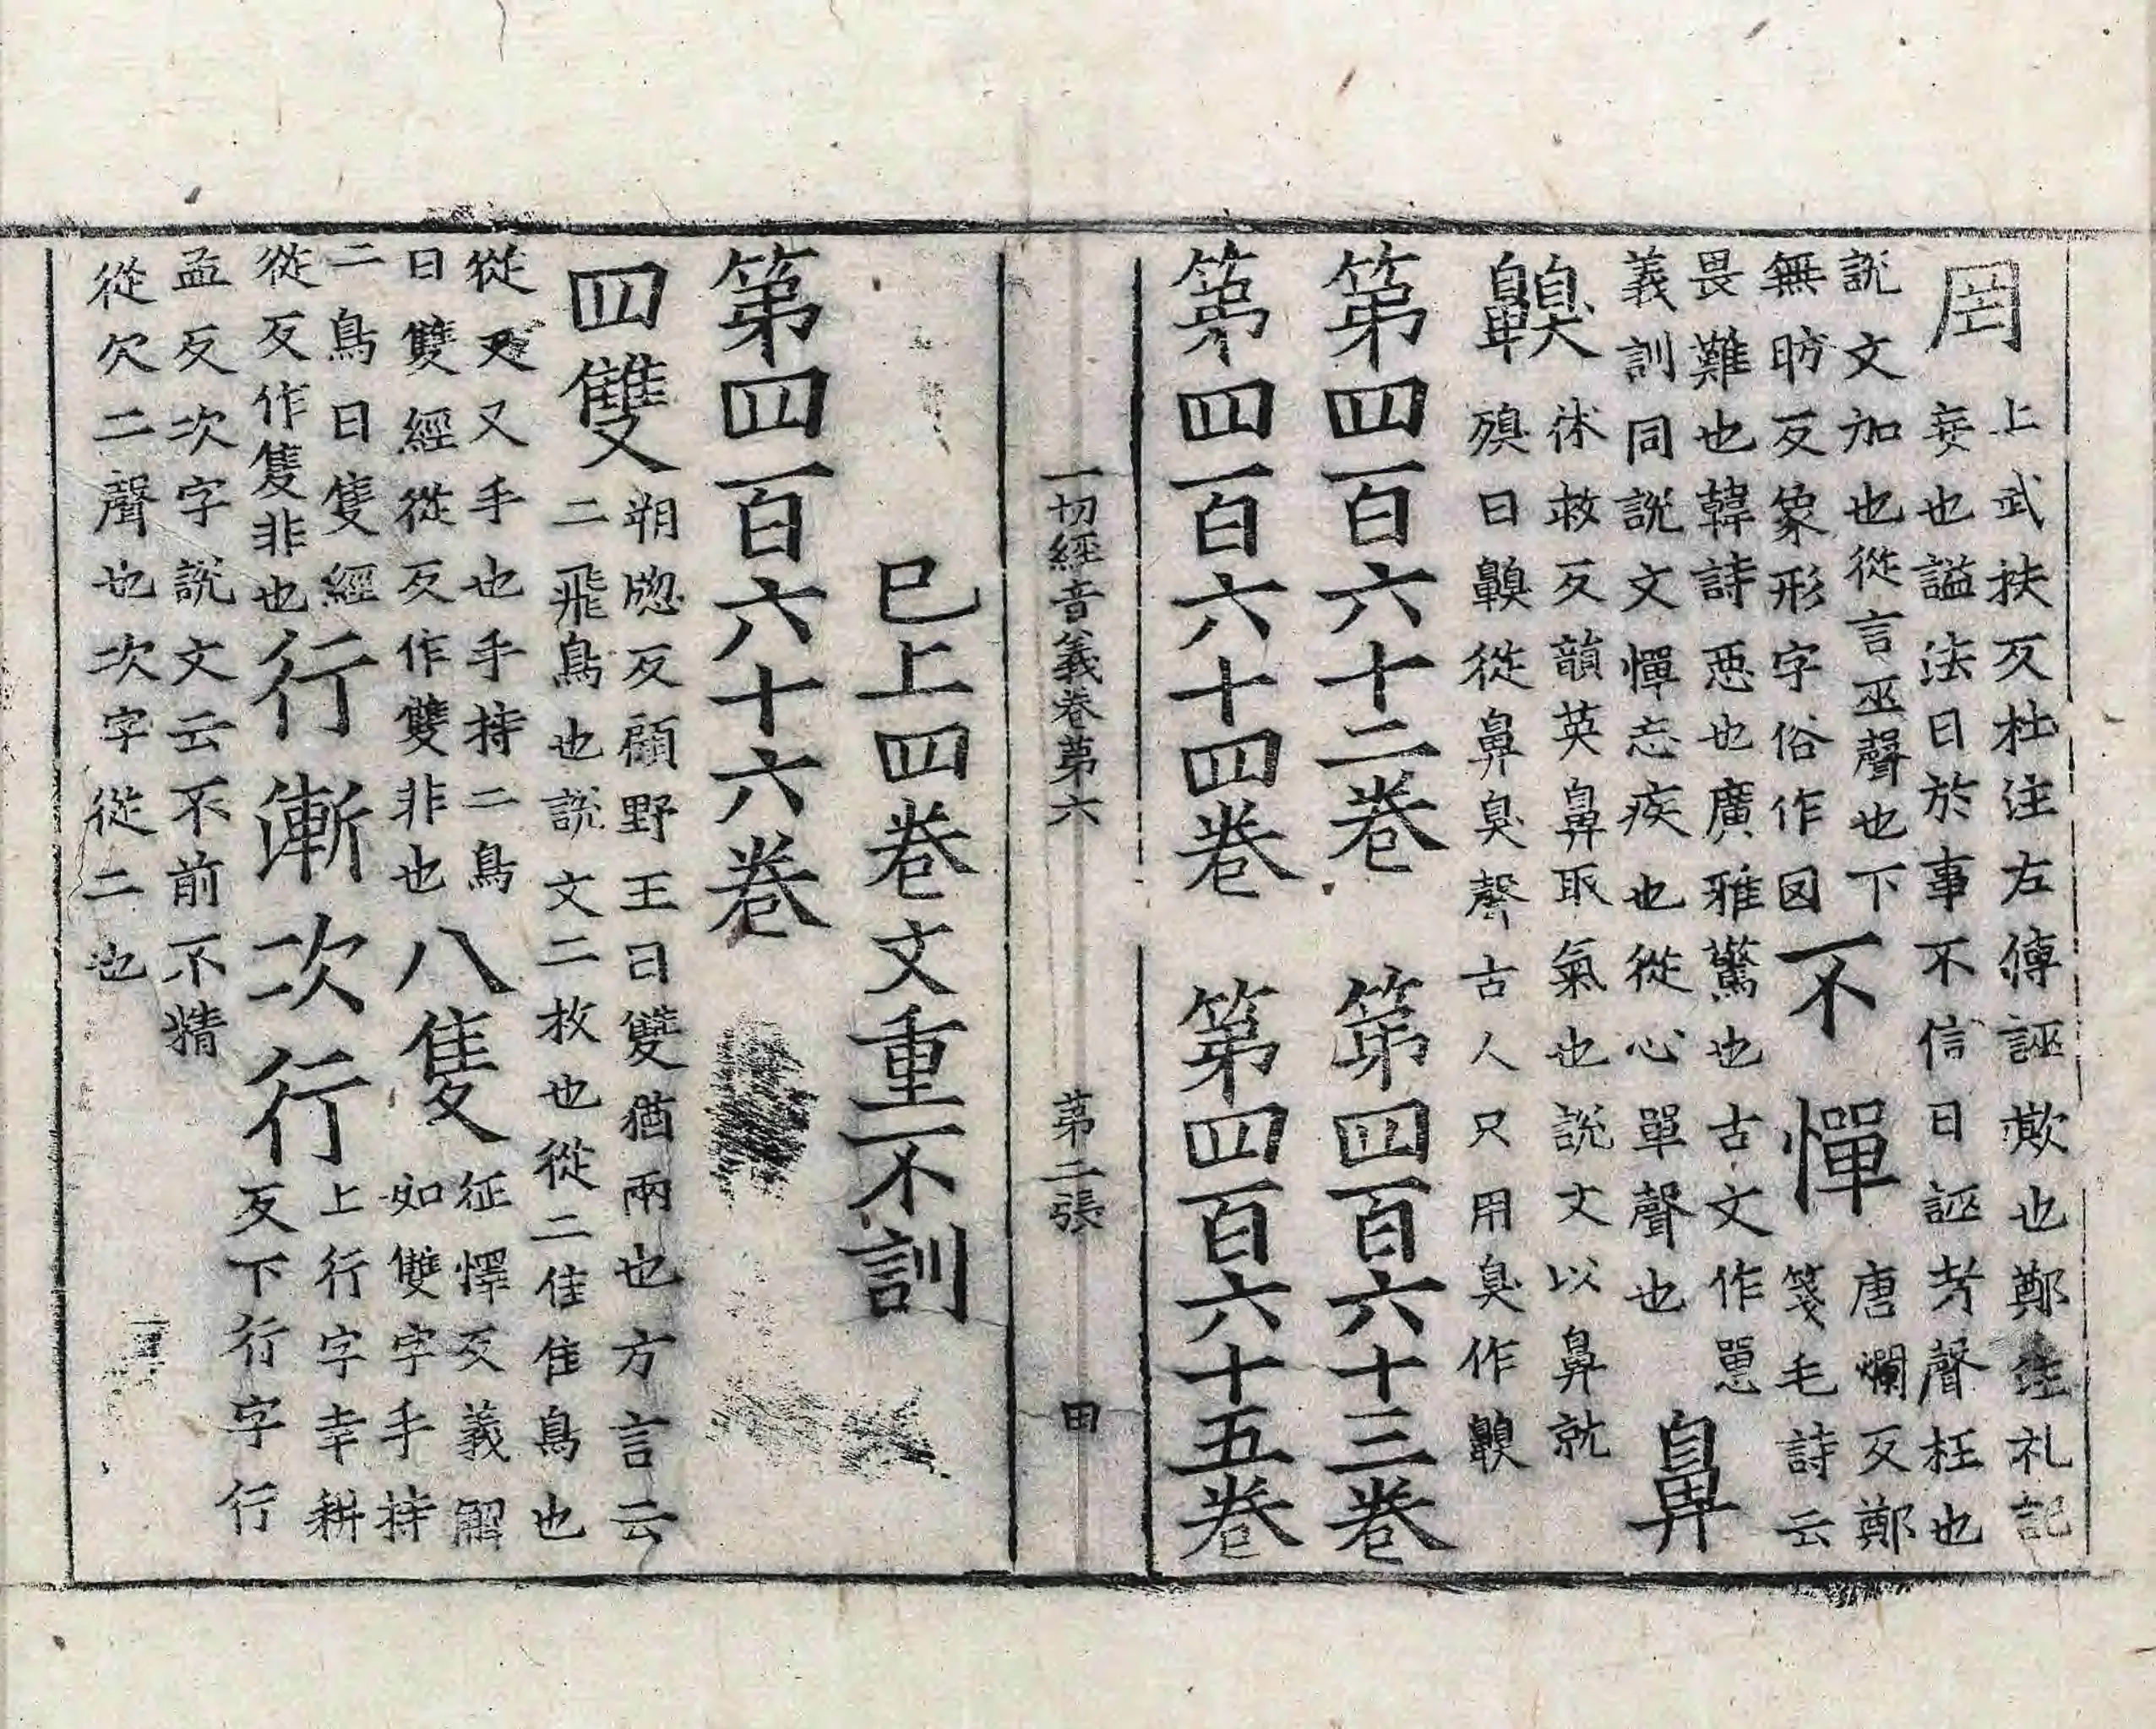 罔 上武扶反杜注左傳誣欺也鄭注礼記
妄也謚法曰於事不信曰誣考聲枉也
說文加也從言巫聲也下
無昉反象形字俗作囡 不憚 唐爛反鄭
箋毛詩云
畏難也韓詩惡也廣雅驚也古文作㥛
義訓同說文憚忌疾也從心單聲也 鼻
齅 休救反韻英鼻取氣也說文以鼻就
殠曰齅從鼻臭聲古人只用臭作齅
第四百六十二卷 第四百六十三卷
第四百六十四卷 第四百六十五卷
一切經音義卷第六 第二張 田
已上四卷文重不訓
第四百六十六卷
四雙 朔牎反顧野王曰雙猶兩也方言云
二飛鳥也說文二枚也從二隹隹鳥也
從又又手也手持二鳥
曰雙經從反作雙非也 八隻 征懌反義解
如雙字手持
二鳥曰隻經
從反作隻非也 行漸次行 上行字幸耕
反下行字行
孟反次字說文云不前不精
從欠二聲也次字從二也